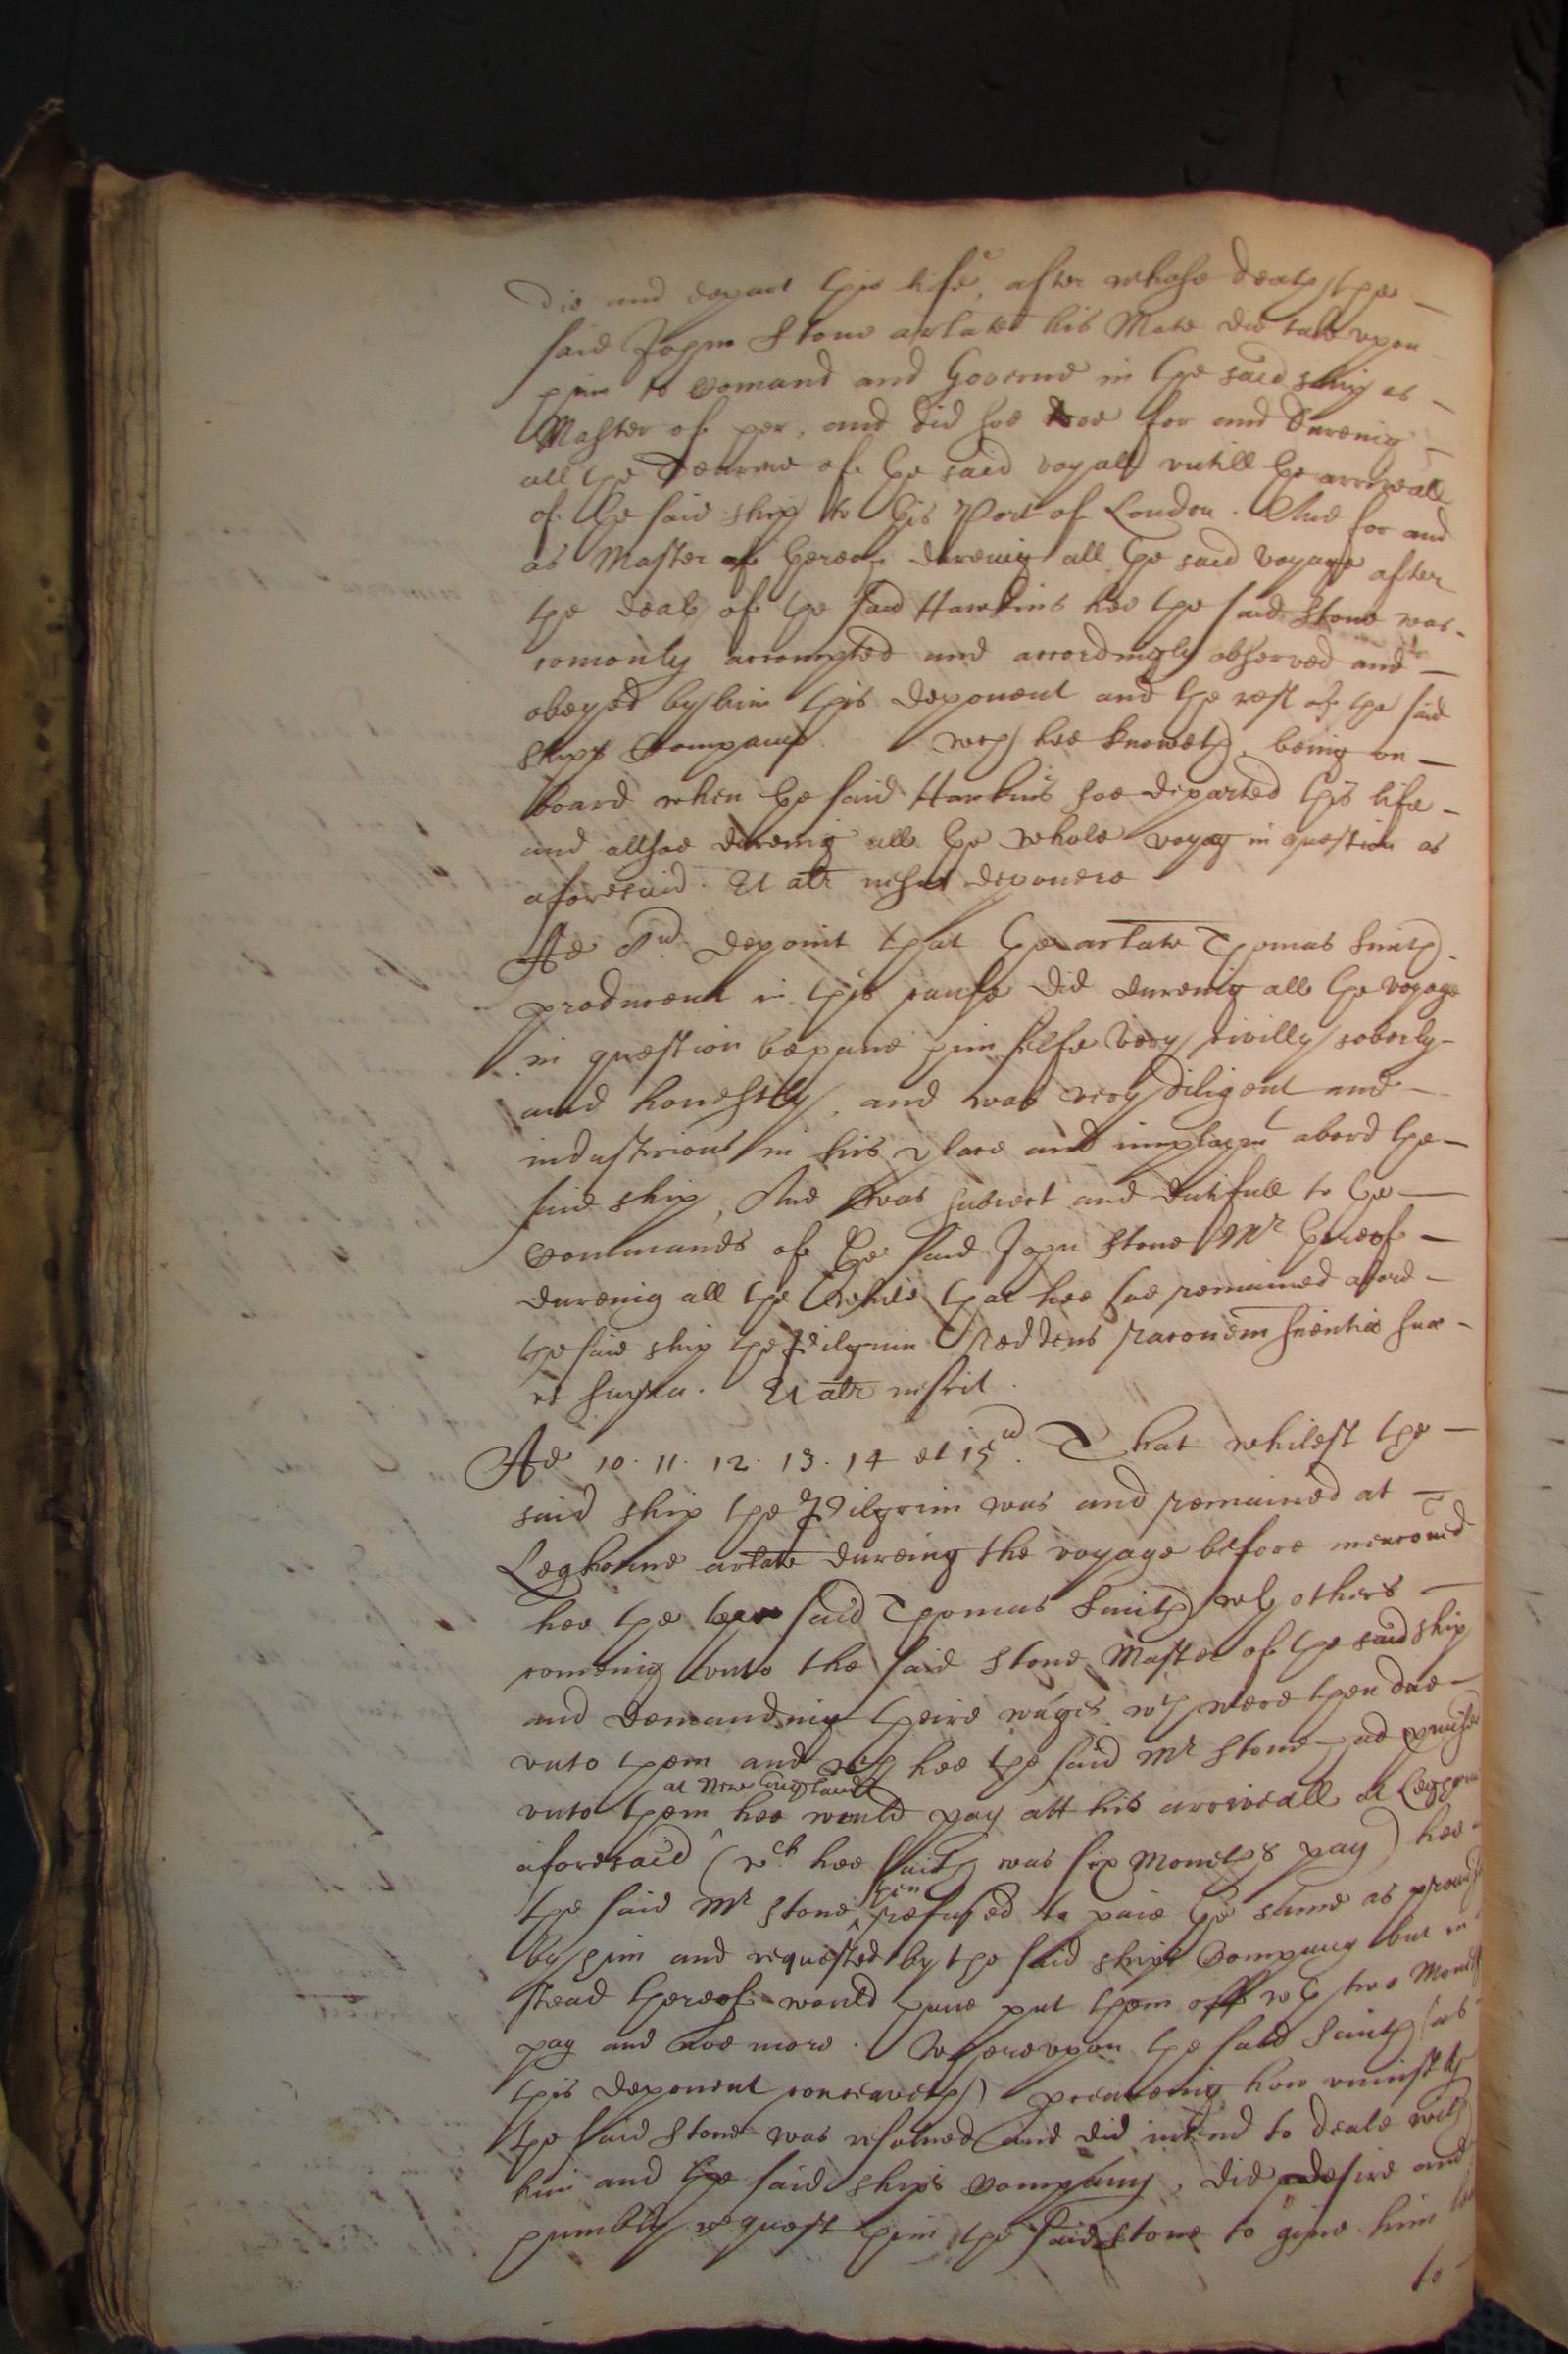 die and depart this life, after whose death the
said John Stone arlate his Mate did take upon
him to Comand and Governe in the said ship as
Master of her, and did soe doe for and dureing
all the tearme of the said voyall untill the arriveall
of the said ship to this Port of London. And for and
as Master of thereof dureing all the said voyage after
the death of the said Hawkins hee the said Stone was
comonly accompted and accordingly observed and
obeyed by him this deponent and the rest of the said
shipps Company. wch hee knoweth, being on
board when the said Hawkins soe departed this life
and allsoe dureing all the whole voyag in question as
aforesaid. Et atr nescit deponere
Ad 8ud. deponit that the arlate Thomas Smith
producent in this cause did dureing all the voyage
in question behave him selfe very civilly soberly
and honestly, and was very diligent and
industrious in his place and imploymt abord the
said ship, And was subiect and dutifull to the
Commands of the said John Stone Mr thereof
dureing all the while that hee soe remained abord
the said ship the Pilgrim Reddens raconem scientiæ suæ
ut supra. Et atr nescit.
Ad 10. 11. 12. 13. 14 et 15ud. That whilest the
said ship the Pilgrim was and remained at
Leghorne arlate dureing the voyage before menconed
hee the said Thomas Smith wth others
comeing unto the said Stone Master of the said ship
and demanding theire wages wch were then due
unto them and wch hee the said Mr Stone had promised
at New England
unto them hee would pay att his arriveall at Leghorne
aforesaid (wch hee saith was six Moneths pay) hee
then
the said Mr Stone refused to paie the same as promised
by him and requested by the said ships Company but in
stead thereof would have put them off wth two Moneths
pay and noe more. Whereupon the said Smith (as
this deponent conceaveth) preceaveing how uniustly
the said Stone was resolved and did intend to deale with
him and the said ships Company, did desire and
humbly request him the said Stone to give him
to